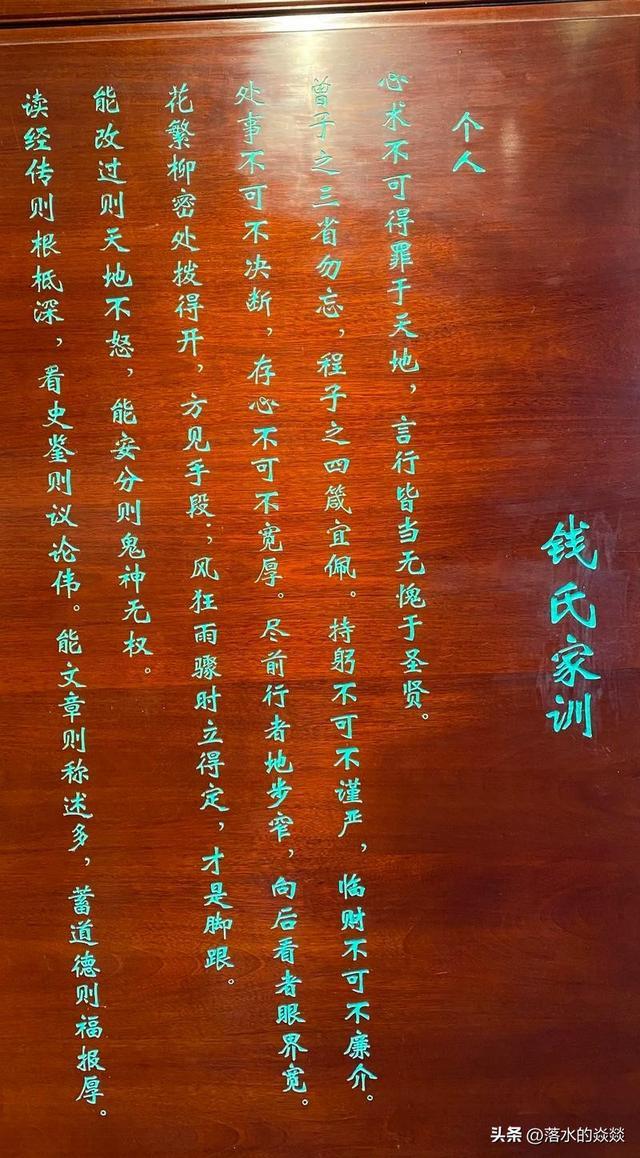 钱氏家训
个人
心术不可得罪于天地，言行皆当无愧于圣贤。
曾子之三省勿忘，程子之四箴宜佩。持躬不可不谨严，临财不可不廉介。
处事不可不决断，存心不可不宽厚。尽前行者地步窄，向后看者眼界宽。
花繁柳密处拨得开，方见手段；风狂雨骤时立得定，才是脚跟。
能改过则天地不怒，能安分则鬼神无权。
读经传则根柢深，看史鉴则议论伟。能文章则称述多，蓄道德则福报厚。
头条 @落水的焱燚